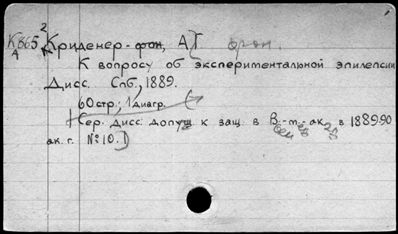 К865 Криденер-фон, А. фон.
А
К вопросу об экспериментальной эпилепсии
Дисс. Спб., 1889.
60 стр.; 1 диагр.
(Сер. дисс. допущ. к защ. в В.-м. ак. в 1889-90
ак. г. № 10.)